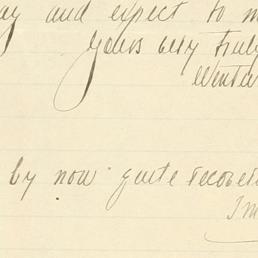 and expect to m
Yours very truly
Winta
by now quite recovere